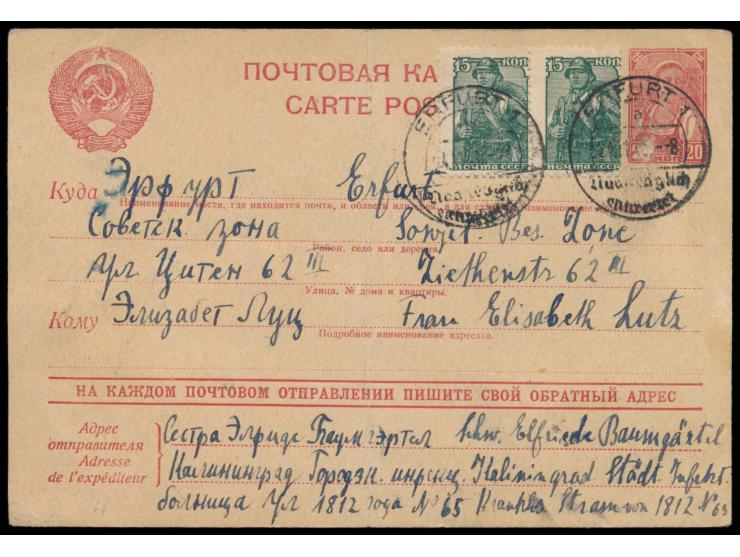 ПОЧТОВАЯ КА
CARTE POS
15 КОП
15 КОП
ПОЧТА СССР
ПОЧТА СССР
20
ERFURT 1
ERFURT 1
a
Nachträglich
entwertet
Nachträglich
entwertet
Куда Эрфурт Erfurt
Наименование места, где находится почта, и области или края, а для станции наименование
Советск зона Sowjet. Bes. Zone
Район, село или деревня
ул. Цитен 62 III Ziethenstr 62 III
Улица, № дома и квартиры
Кому Элизабет Луц Frau Elisabeth Lutz
Подробное наименование адресата.
НА КАЖДОМ ПОЧТОВОМ ОТПРАВЛЕНИИ ПИШИТЕ СВОЙ ОБРАТНЫЙ АДРЕС
Адрес
отправителя
Adresse
de l'expéditeur
Сестра Элфриде Баумгэртел Schw. Elfriede Baumgärtel
Калининград Kaliningrad Städt
больница ул 1812 года № 65 1812 № 65